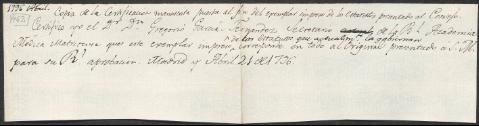 1796 Abril. Copia de la Certificacion manuscrita puesta al fin del exemplar impreso de los estatutos presentado al Consejo.
Certifico yo el Dr. Dn. Gregorio Garcia Fernandez Secretario de la Rl. Academia
de los Estatutos que actualmte. la gobiernan
Medica Matritense que este exemplar impreso corresponde en todo al Original presentado a S. M.
para su Rl. aprobacion. Madrid y Abril 21 de 1796.